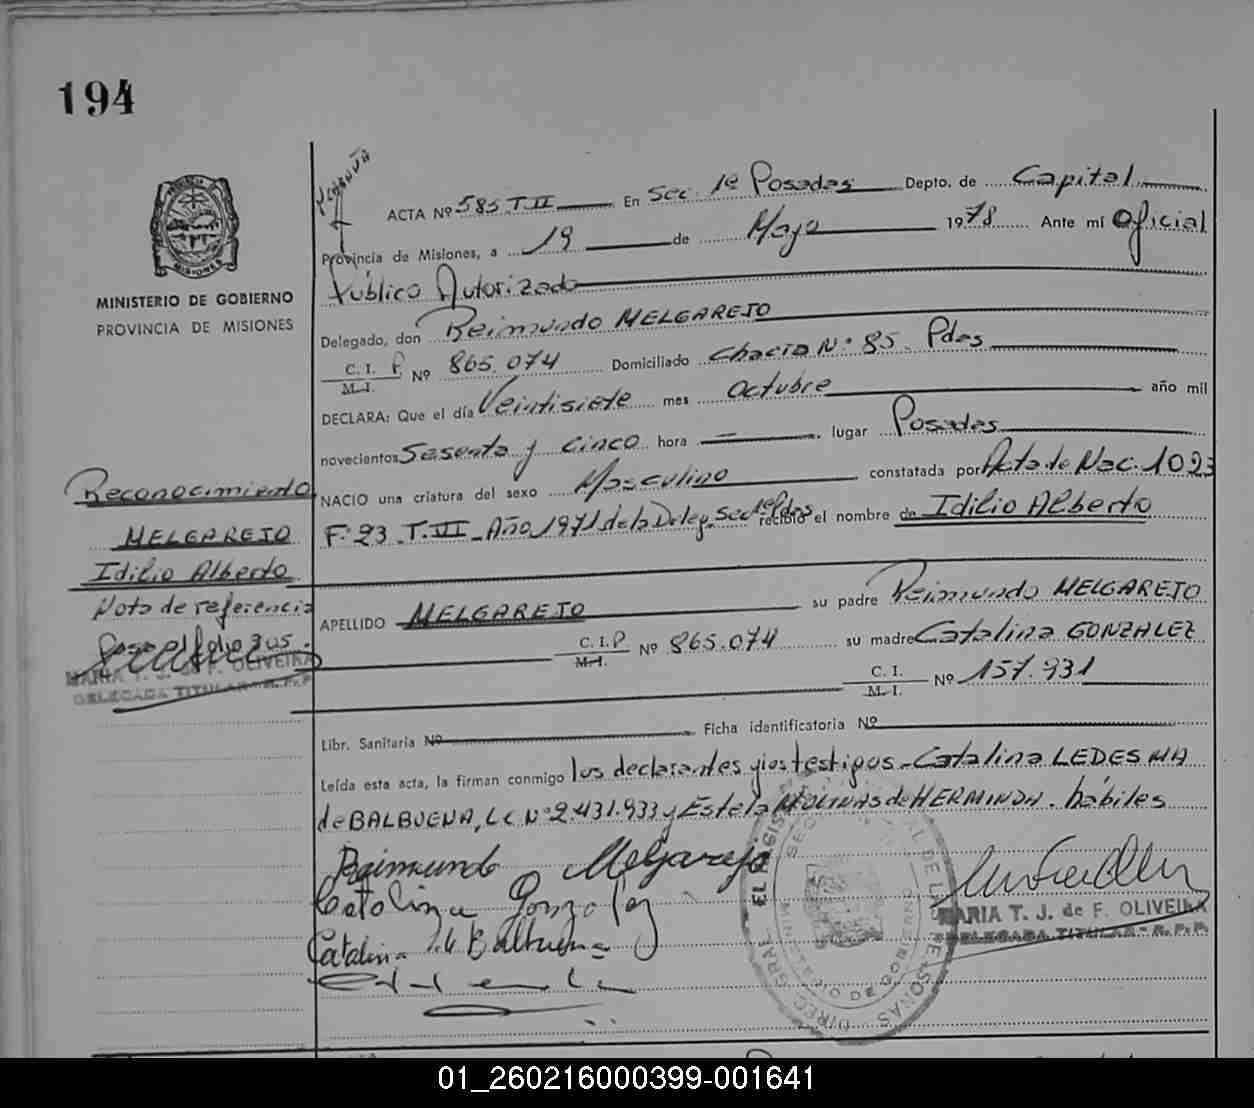 194
MINISTERIO DE GOBIERNO
PROVINCIA DE MISIONES
ACTA Nº 585 T. II En Sec. 1ª Posadas Depto. de Capital
Provincia de Misiones, a 19 de Mayo 1978 Ante mí Oficial
Público Autorizado
Delegado, don Reimundo MELGAREJO
C. I. P. Nº 865.074 Domiciliado Chacra Nº 85. Pdas
M. I.
DECLARA: Que el día Veintisiete mes octubre año mil
novecientos Sesenta y cinco hora — lugar Posadas
NACIO una criatura del sexo Masculino constatada por Acta de Nac. 1023
Fº 23 T. VI Año 1971 de la Deleg. Sec 1ª Pdas recibio el nombre de Idilio Alberto
APELLIDO MELGAREJO su padre Reimundo MELGAREJO
C. I. P Nº 865.074 su madre Catalina GONZALEZ
M. I.
C. I. Nº 157.931
M. I.
Libr. Sanitaria Nº Ficha identificatoria Nº
Leída esta acta, la firman conmigo los declarantes y los testigos - Catalina LEDESMA
de BALBUENA, LC Nº 2.431.933 y Estela MOLINAS de HERMINDA. hábiles
Reimundo Melgarejo
Catalina Gonzalez
Catalina L. de Balbuena
MARIA T. J. de F. OLIVEIRA
DELEGADA TITULAR - R. P. P.
Reconocimiento
MELGAREJO
Idilio Alberto
Nota de referencia
Pasa el folio 305.
MARIA T. J. de F. OLIVEIRA
DELEGADA TITULAR - R. P. P.
01_260216000399-001641